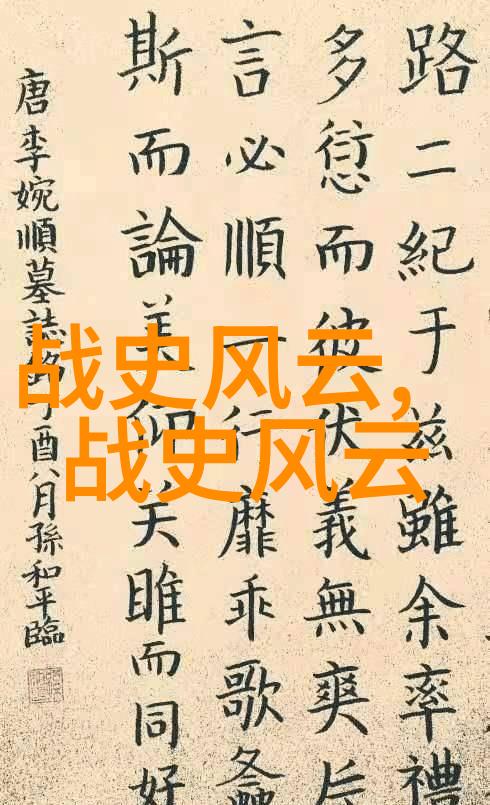 路二紀于兹雖余率禮
多愆而彼伏義無爽片
言必順一行靡乖歌螽
斯而論美仰关雎而同好
唐李婉順墓誌銘丁酉八月孫和平臨
战史风云,
战史风云